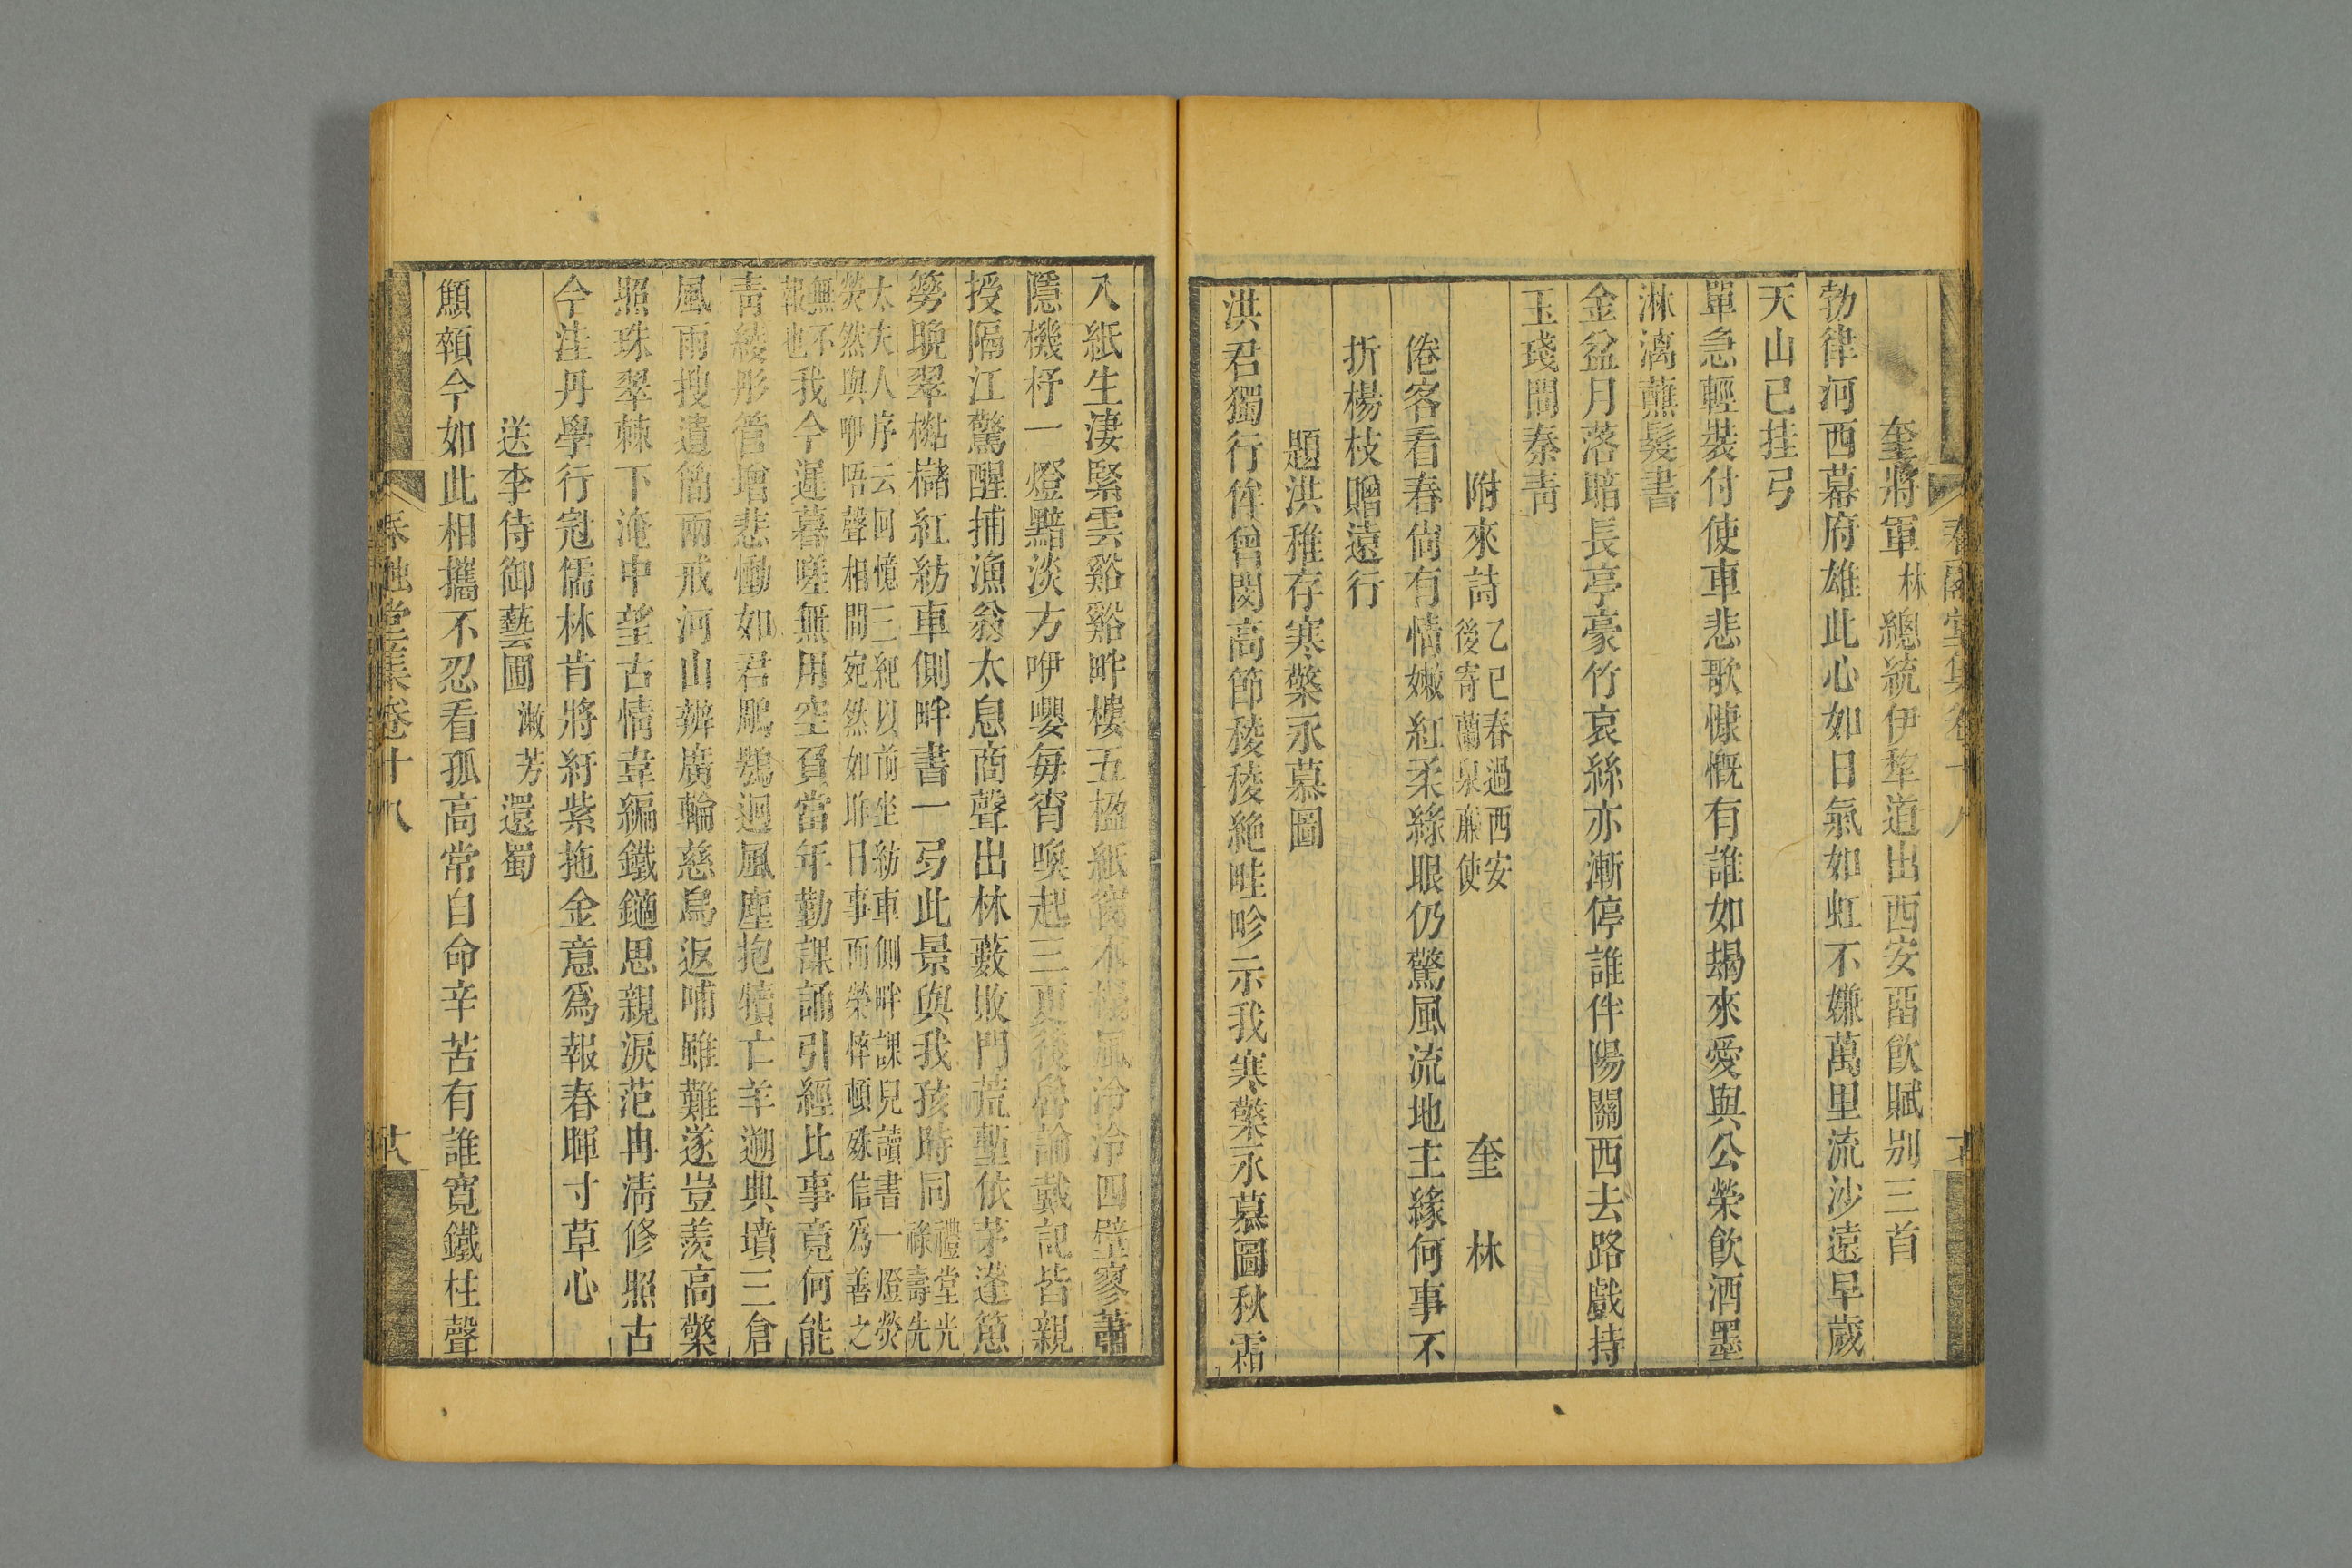 奎將軍林總統伊犂道出西安畱飮賦别三首
勃律河西幕府雄此心如日氣如虹不嫌萬里流沙遠早歲
天山已挂弓
單急輕裝付使車悲歌慷慨有誰如朅來愛與公榮飮酒墨
淋漓蘸髮書
金盆月落暗長亭豪竹哀絲亦漸停誰伴陽關西去路戲持
玉琖問秦靑
附來詩乙巳春過西安後寄蘭泉廉使 奎 林
倦客看春尙有情嫩紅柔綠眼仍驚風流地主緣何事不
折楊枝贈遠行
題洪稚存寒檠永慕圖
洪君獨行侔曾閔高節稜稜絶畦畛示我寒檠永慕圖秋霜
入紙生淒緊雲谿谿畔樓五楹紙窗木榻風泠泠四壁寥蕭
隱機杼一燈黯淡方咿嚶每宵喚起三更後魯論戴記皆親
授隔江驚醒捕漁翁太息商聲出林藪敗門荒塹依茅蓬篦
簩晩翠檆櫧紅紡車側畔書一弓此景與我孩時同禮堂光祿壽先
太夫人序云回憶三紀以前坐紡車側畔課兒讀書一燈熒
熒然與咿唔聲相間宛然如昨日事而榮悴頓殊信爲善之
無不報也我今遲暮嗟無用空負當年勤課誦引經比事竟何能
靑綾彤管增悲慟如君鵰鶚迥風塵抱犢亡羊邇典墳三倉
風雨搜遺簡兩戒河山辨廣輪慈烏返哺雖難遂豈羨高檠
照珠翠棘下淹中望古情韋編鐵鏑思親淚范冉淸修照古
今洼丹學行冠儒林肯將紆紫拖金意爲報春暉寸草心
送李侍御藝圃漱芳還蜀
顦顇今如此相攜不忍看孤高常自命辛苦有誰寬鐵柱聲
春融堂集卷十八